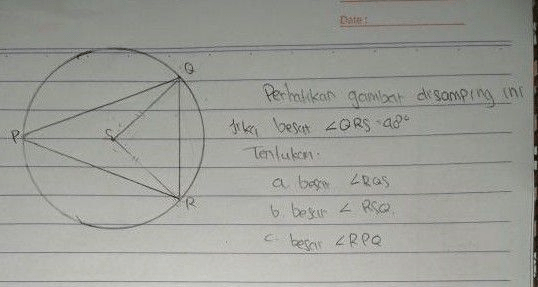 Date :
Q
P
S
R
Perhatikan gambar disamping ini
jika besar ∠QRS = 48°
Tentukan.
a. besar ∠RQS
b. besar ∠ RSQ.
c. besar ∠RPQ